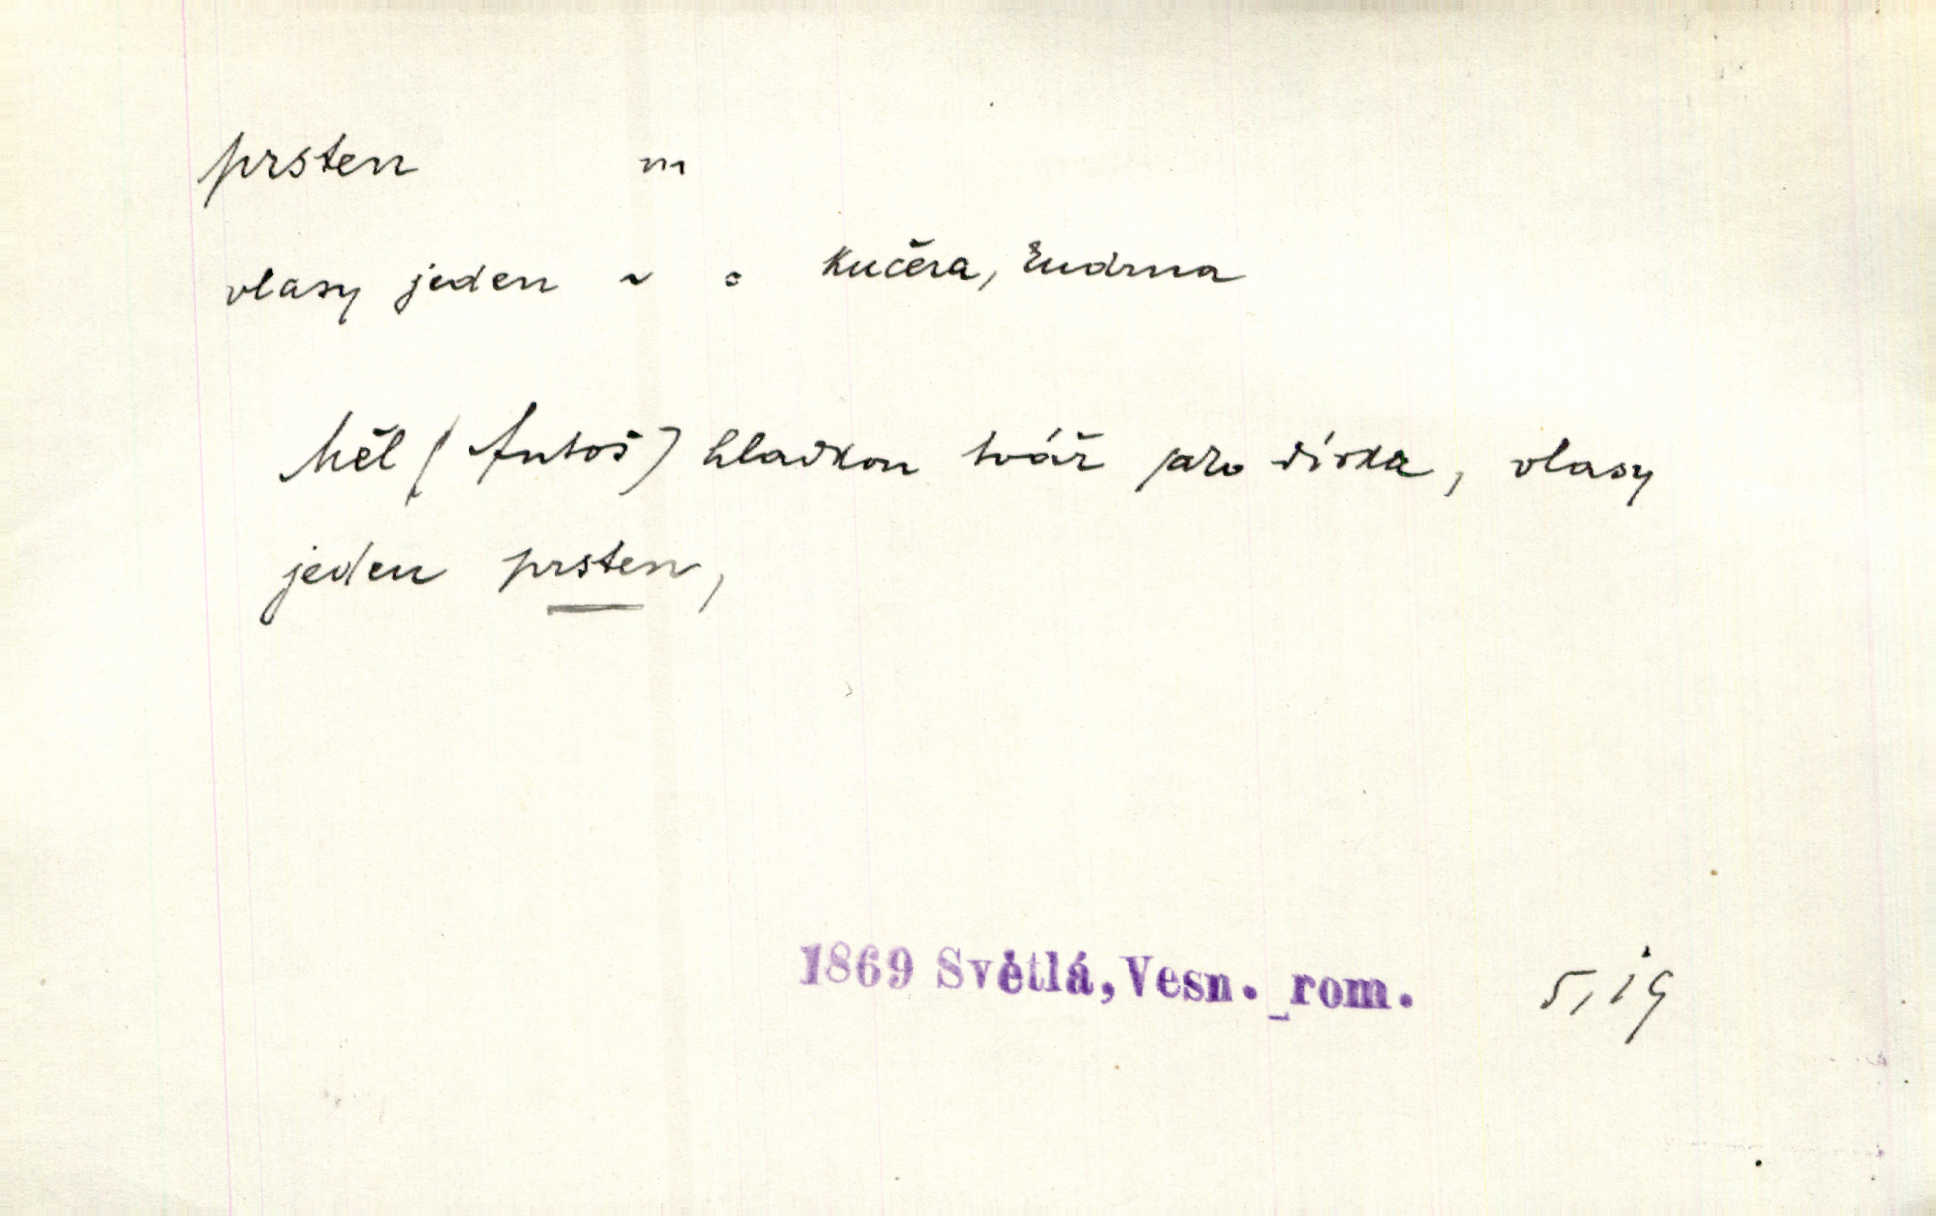 prsten m
vlasy jeden ~ = kučera, kudrna
Měl (Antoš) hladkou tvář jako dívka, vlasy
jeden prsten,
1869 Světlá, Vesn. rom. 5, 19